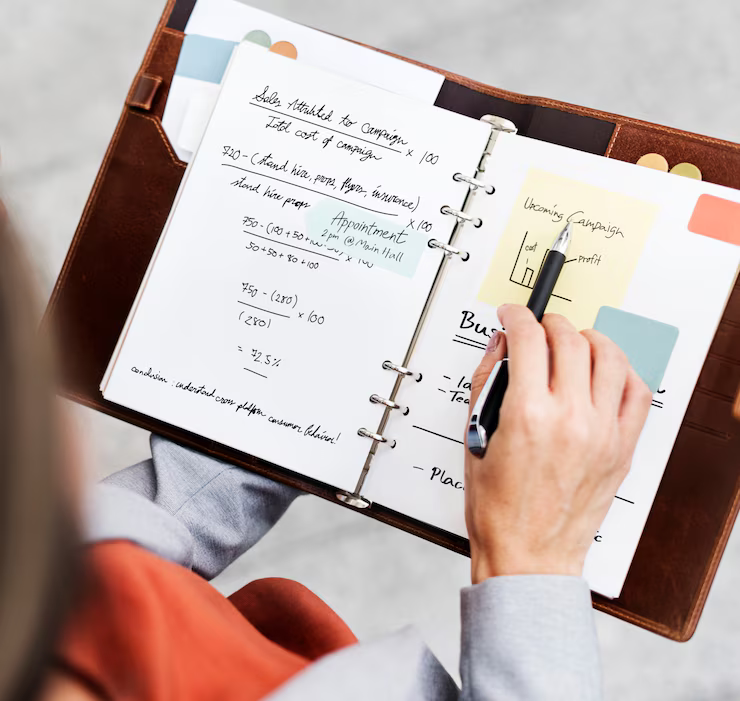 Sales Attributed to Campaign
Total cost of campaign
× 100
720 - (stand hire, props, flyers, insurance)
stand hire props
× 100
Appointment
2pm @ Main Hall
750 - (100 + 50 +
50 + 50 + 80 + 100
× 100
750 - (280)
(280)
× 100
= 72.5%
conclusion : understand cross platform consumer behavior!
Upcoming Campaign
cost
profit
Bus
- Ta
- Tea
- Plac
c